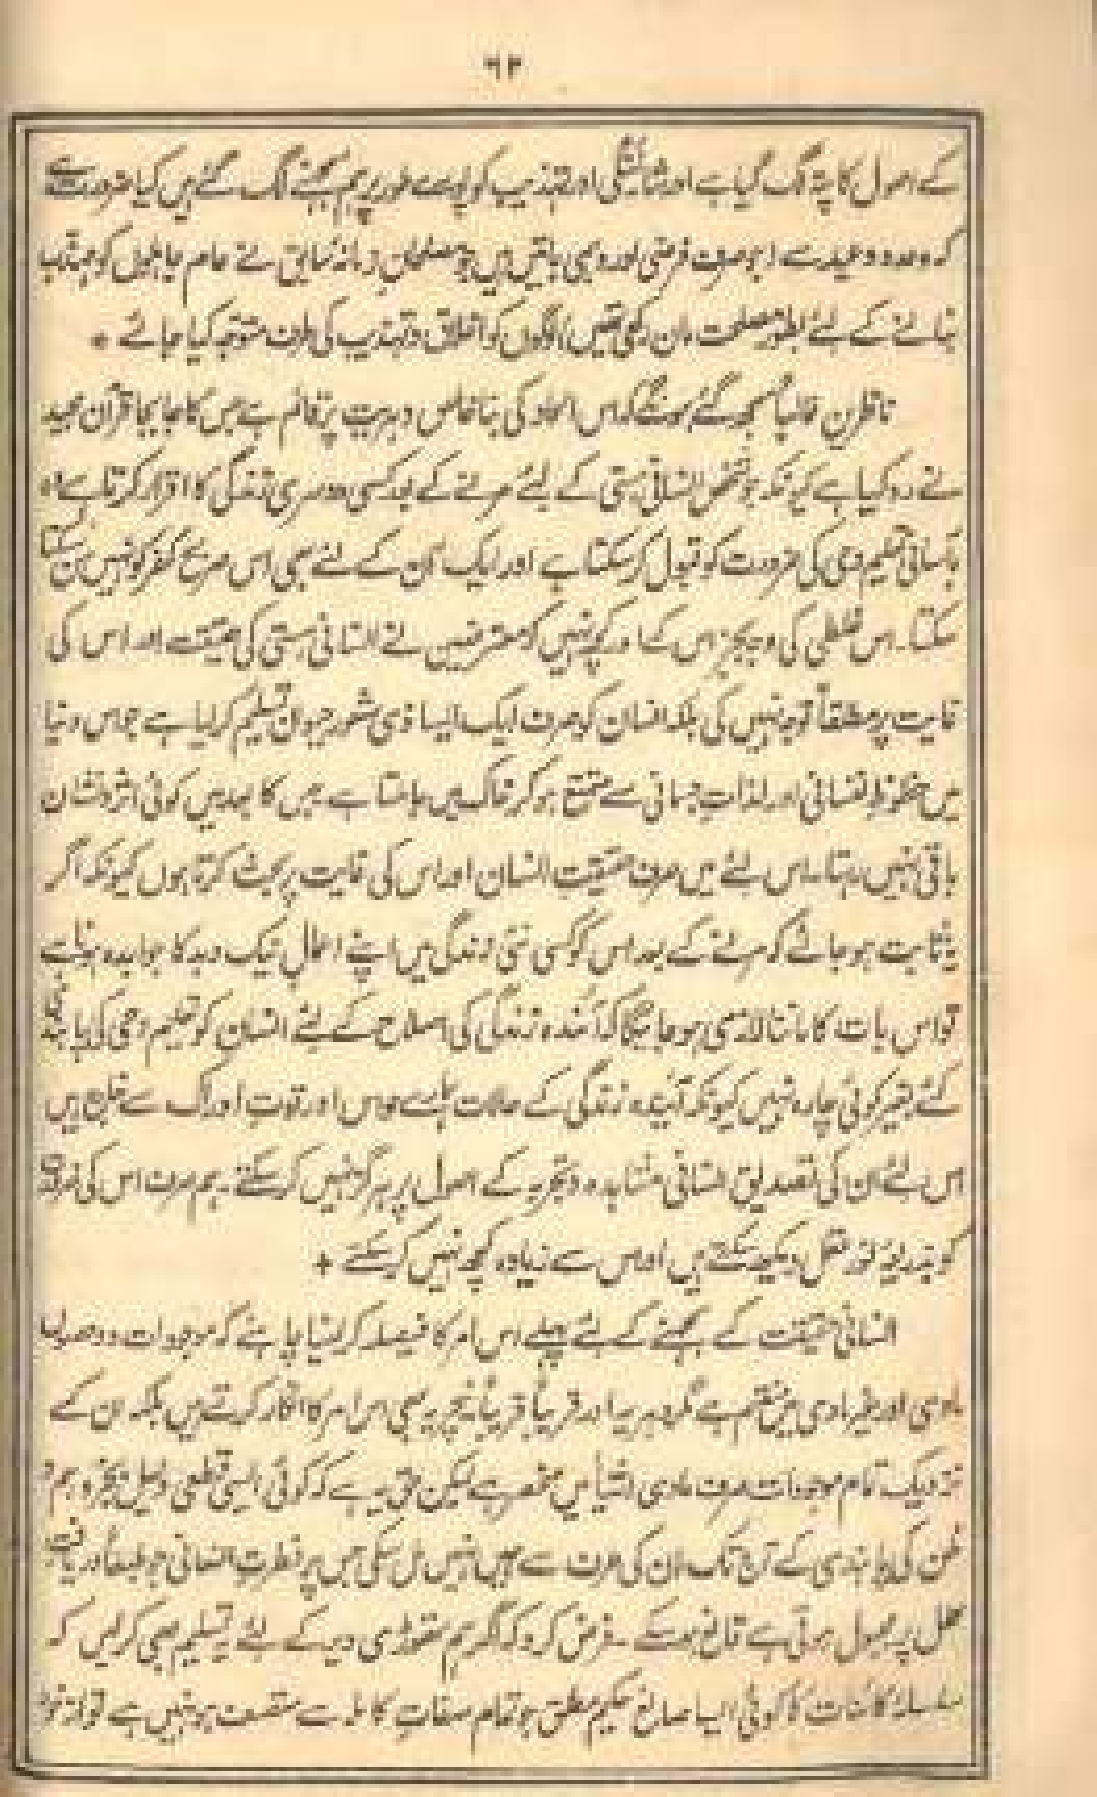 ٦٢
کے اصول کا پتہ لگ گیا ہے اور شائستگی اور تہذیب کو پورے طور پر ہم سمجھنے لگ گئے ہیں کیا ضرورت ہے
کہ وعدہ وعید سے (جو صرف فرضی اور وہمی باتیں ہیں جو مصلحان زمانہ سابق نے عام جاہلوں کو مہذب
بنانے کے لئے بطور مصلحت مان رکھی تھیں) لوگوں کو اخلاق و تہذیب کی طرف متوجہ کیا جائے +
ناظرین غالباً سمجھ گئے ہونگے کہ اس الحاد کی بنا خالص دہریت پر قائم ہے جس کا جابجا قرآن مجید
نے رد کیا ہے کیونکہ جو شخص انسانی ہستی کے لئے مرنے کے بعد کسی دوسری زندگی کا اقرار کرتا ہے وہ
بآسانی تعلیم وحی کی ضرورت کو قبول کر سکتا ہے اور ایک آن کے لئے بھی اس صریح کفر کو نہیں سن سکتا
سکتا۔ اس غلطی کی وجہ بجز اس کے اور کچھ نہیں کہ معترضین نے انسانی ہستی کی حقیقت اور اس کی
غایت پر مطلقاً توجہ نہیں کی بلکہ انسان کو صرف ایک ایسا ذی شعور حیوان تسلیم کر لیا ہے جو اس دنیا
میں حظوظ نفسانی اور لذات جسمانی سے متمتع ہو کر خاک میں جا ملتا ہے جس کا بعد میں کوئی اثر و نشان
باقی نہیں رہتا۔ اس لئے میں صرف حقیقت انسان اور اس کی غایت پر بحث کرتا ہوں کیونکہ اگر
یہ ثابت ہو جائے کہ مرنے کے بعد اس کو کسی نئی زندگی میں اپنے اعمال نیک و بد کا جوابدہ ہونا ہے
تو اس بات کا ماننا لازمی ہو جائیگا کہ آئندہ زندگی کی اصلاح کے لئے انسان کو تعلیم وحی کی پابندی
کئے بغیر کوئی چارہ نہیں کیونکہ آئندہ زندگی کے حالات ہمارے حواس اور قوت ادراک سے خارج ہیں
اس لئے ان کی تصدیق انسانی مشاہدہ و تجربہ کے اصول پر ہرگز نہیں کر سکتے۔ ہم صرف اس کی ضرورت
کو بذریعہ نور عقل دیکھ سکتے ہیں اور اس سے زیادہ کچھ نہیں کر سکتے +
انسانی حقیقت کے سمجھنے کے لئے پہلے اس امر کا فیصلہ کر لینا چاہئے کہ موجودات دو حصوں
مادی اور غیر مادی میں منقسم ہے مگر دہریہ اور قریباً قریباً نیچریہ بھی اس امر کا انکار کرتے ہیں بلکہ ان کے
نزدیک تمام موجودات صرف مادی اشیا میں منحصر ہے لیکن حق یہ ہے کہ کوئی ایسی قطعی دلیل بجز وہم و
ظن کی پابندی کے آج تک ان کی طرف سے ہمیں نہیں مل سکی جس پر فطرت انسانی جو طبعاً دریافت
پر مجبول ہوئی ہے قانع ہو سکے۔ فرض کرو کہ اگر ہم تھوڑی دیر کے لئے یہ تسلیم بھی کر لیں کہ
سلسلہ کائنات کا کوئی ایسا صانع حکیم مطلق جو تمام صفات کاملہ سے متصف ہو نہیں ہے تو